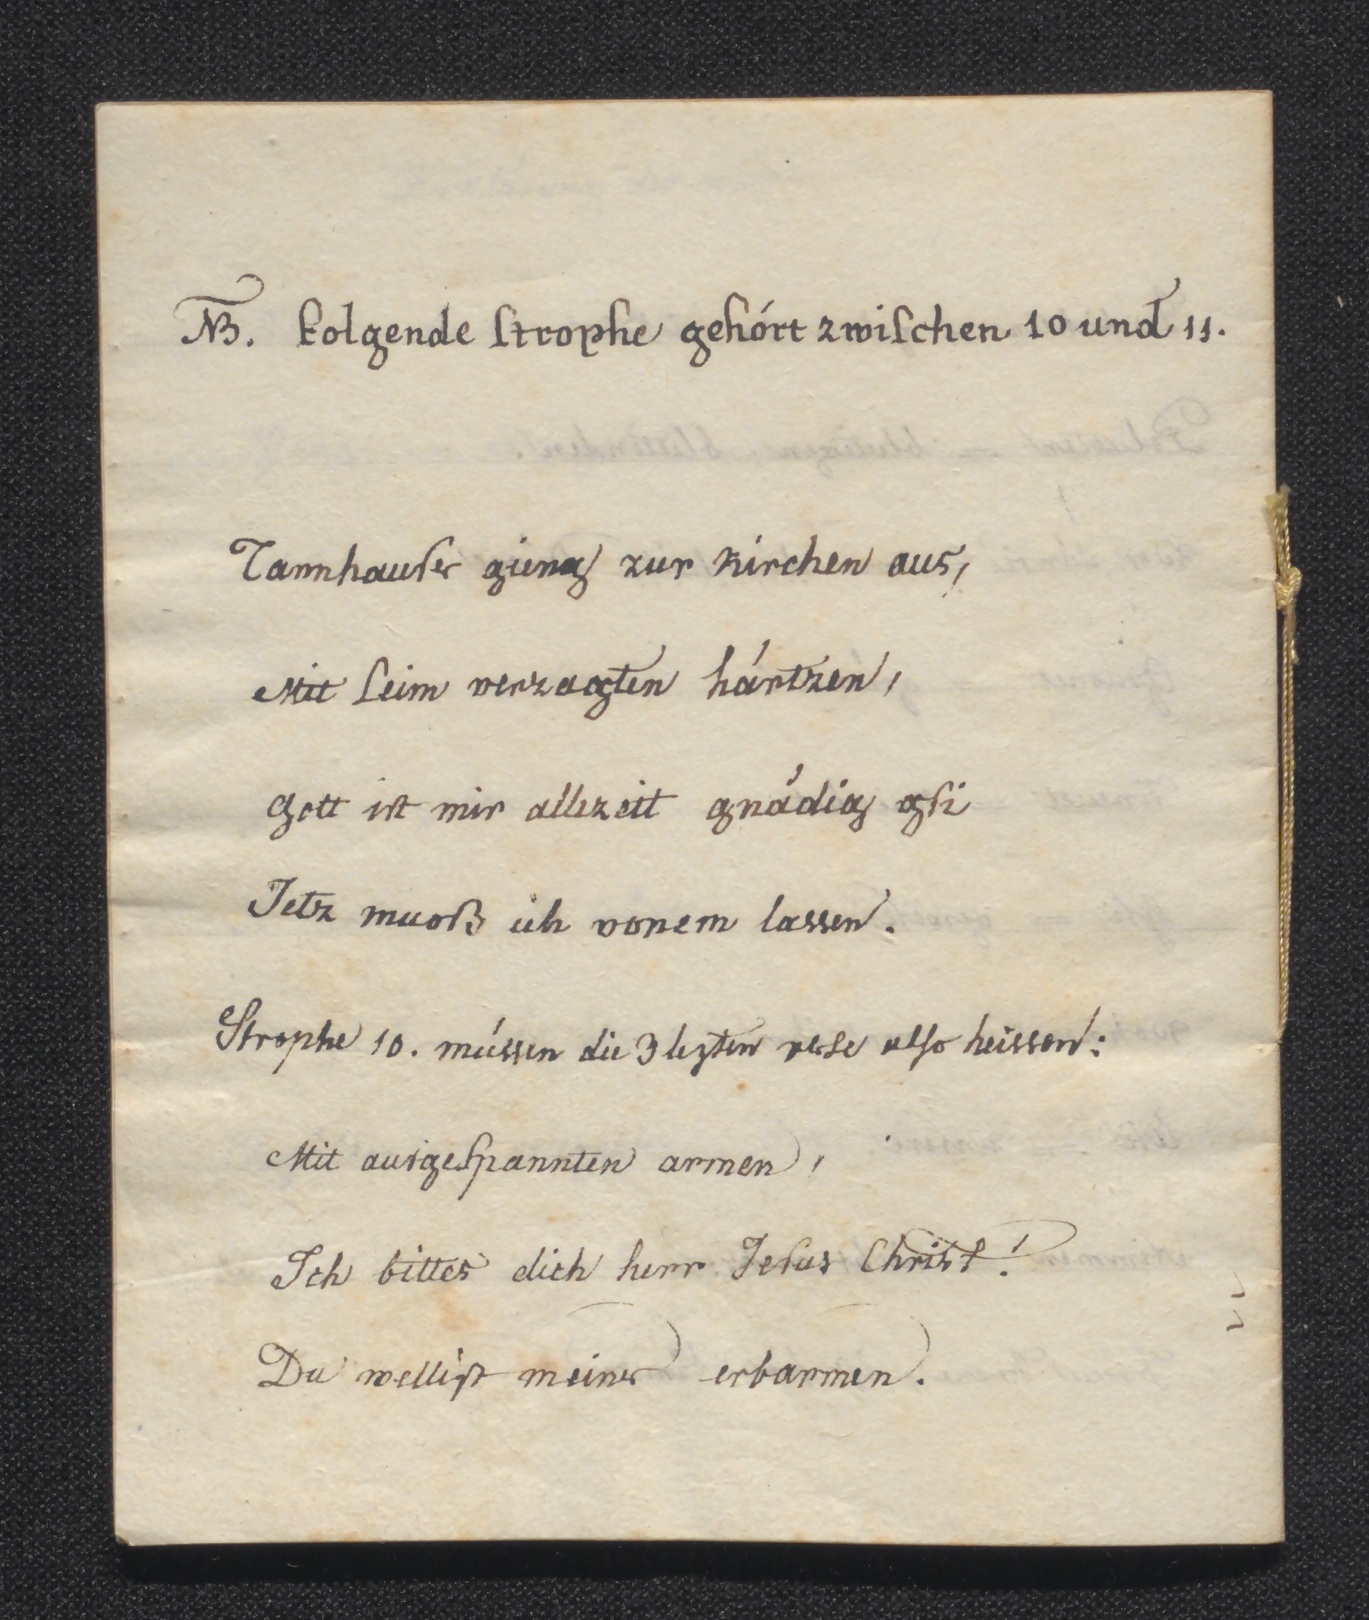 NB. Folgende Strophe gehórt zwischen 10 und 11.
Tannhauser gieng zur Kirchen aus,
Mit seim verzagten hártzen,
Gott ist mir allezeitt gnádig gsi
Jetz muoß ich vonem lassen.
Strophe 10. mússen die 3 lezten verse also heissen:
Mit ausgespannten armen,
Ich bitter dich herr Jesus Christ!
Du wellist meiner erbarmen.